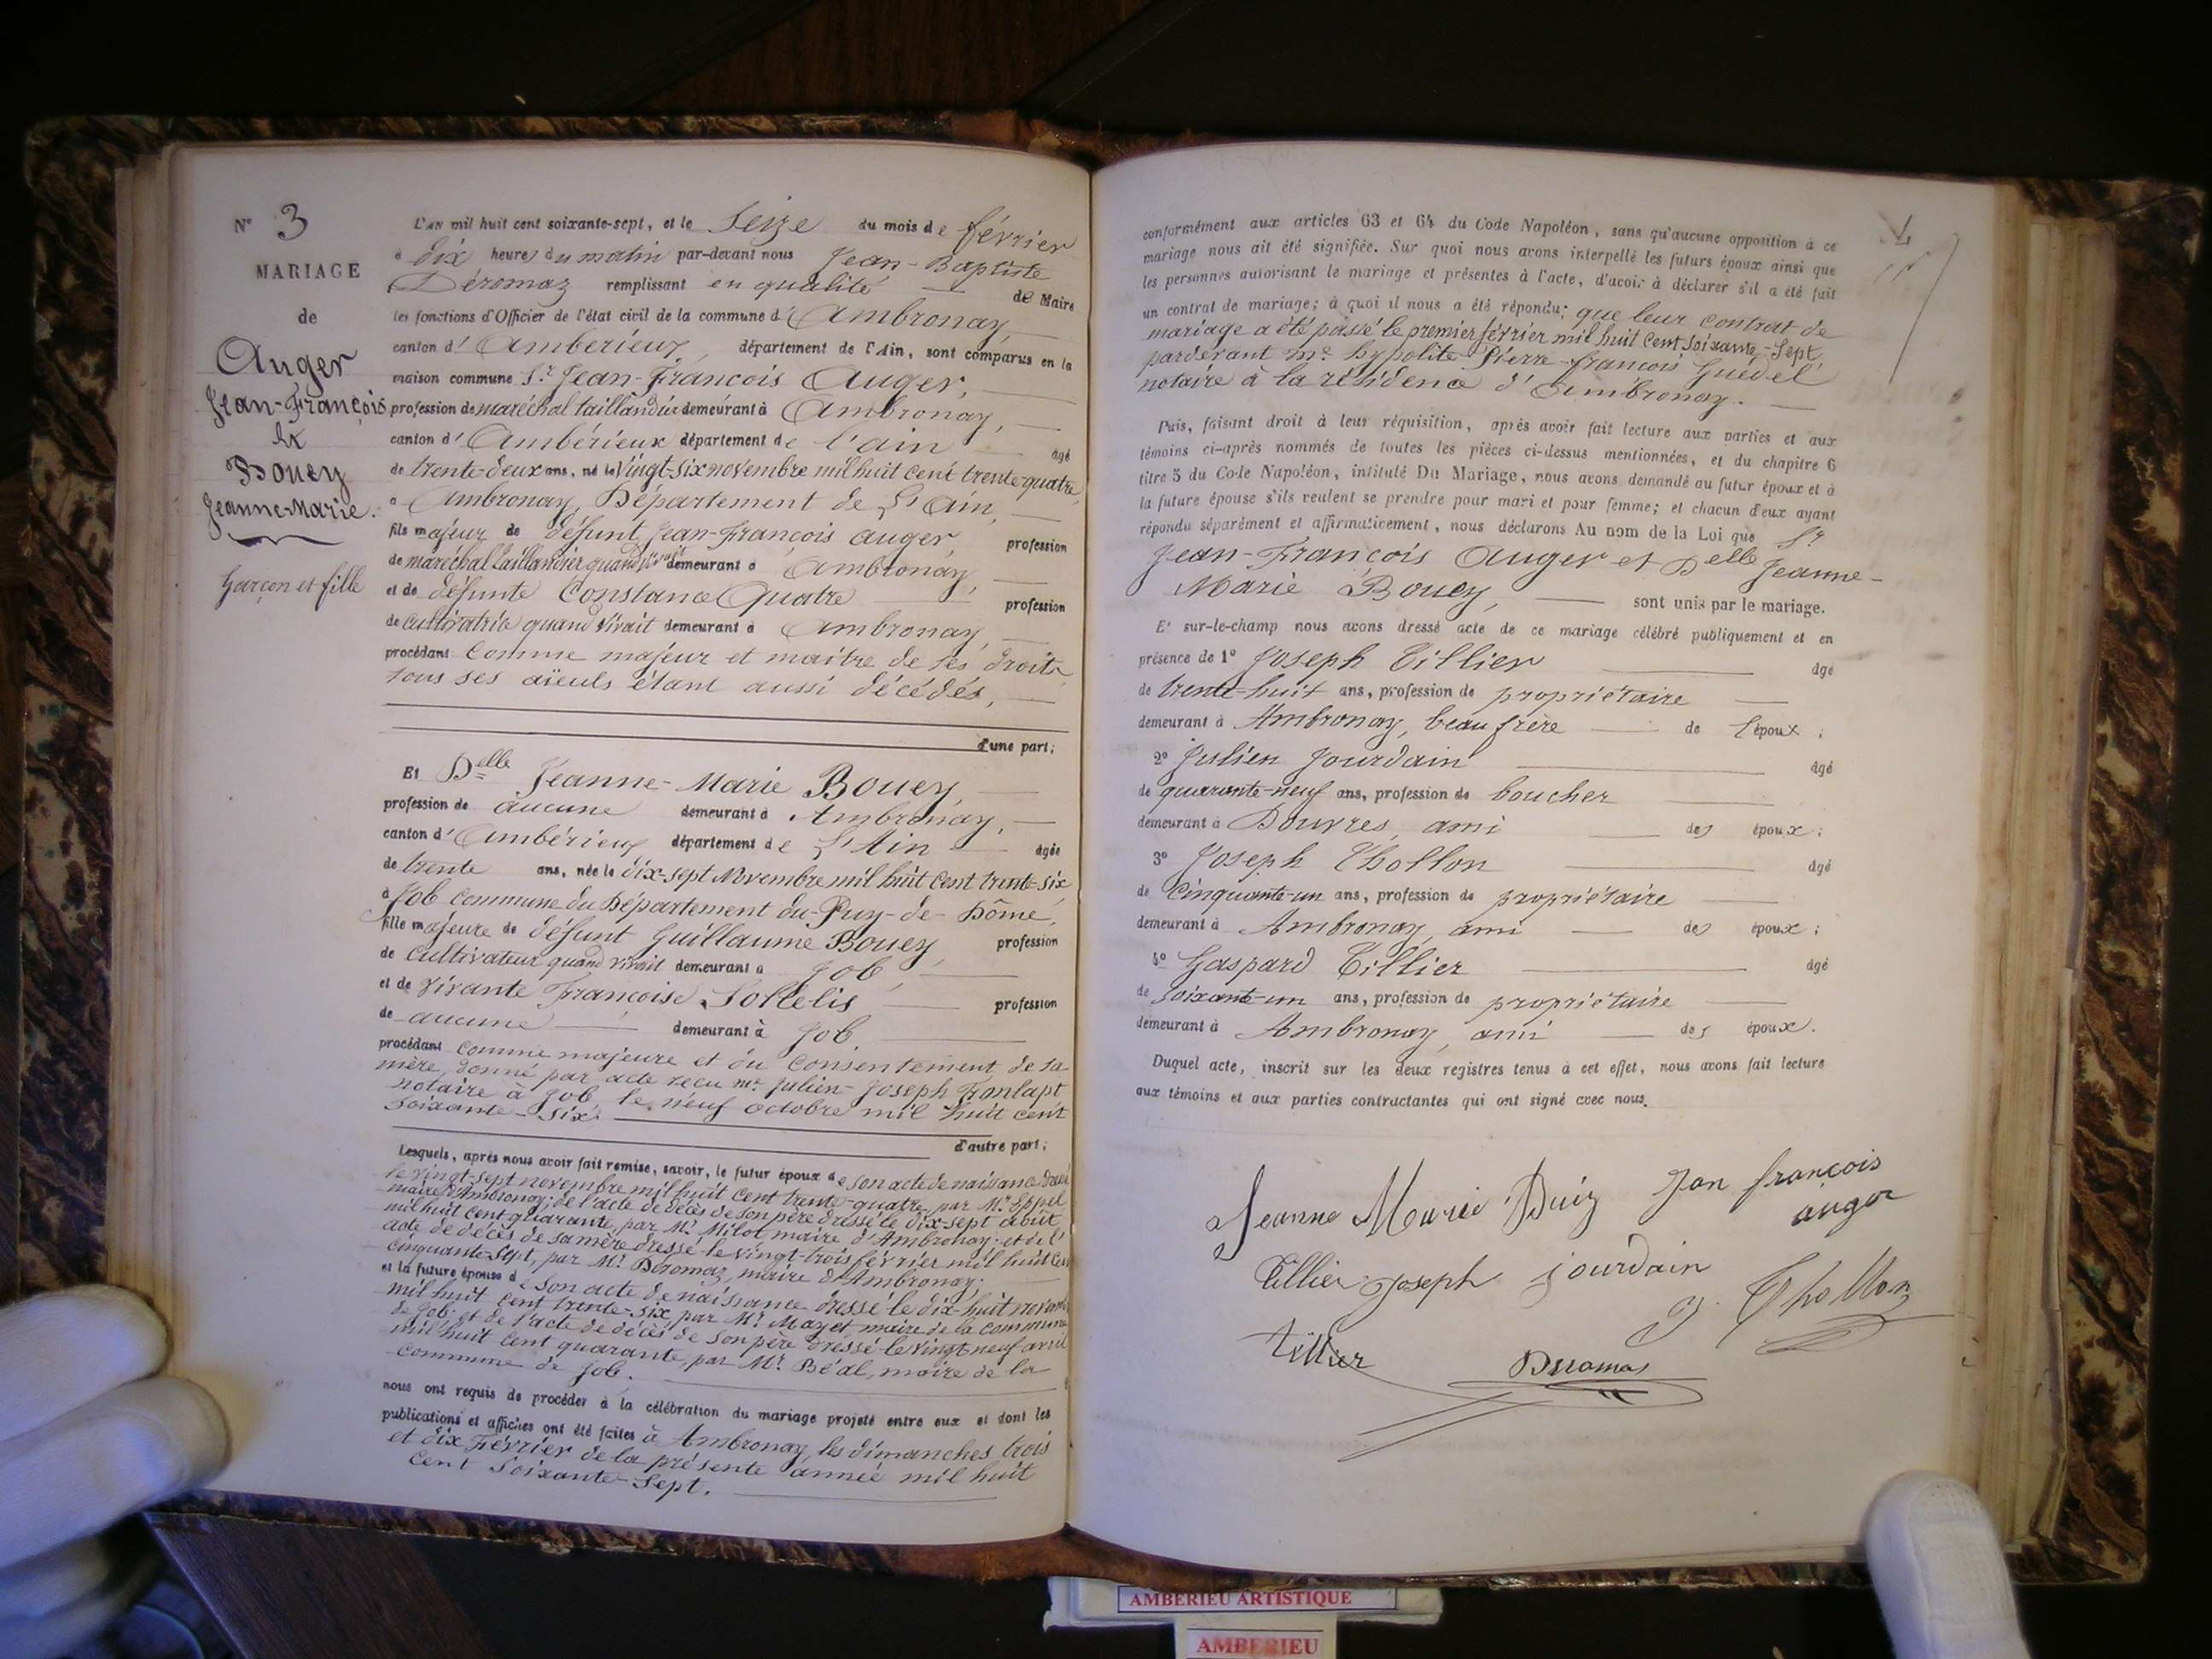 N° 3
MARIAGE
de
Auger
Jean-François
&
Bouey
Jeanne-Marie.
Garçon et fille
L'an mil huit cent soixante-sept, et le Seize du mois de février
à dix heures du matin par-devant nous Jean-Baptiste
Déromaz remplissant en qualité de Maire
les fonctions d'Officier de l'état civil de la commune d'Ambronay,
canton d'Ambérieux, département de l'Ain, sont comparus en la
maison commune Sr Jean-François Auger,
profession de maréchal taillandier demeurant à Ambronay,
canton d'Ambérieux département de l'ain âgé
de trente-deux ans, né le Vingt-six novembre mil huit cent trente quatre,
à Ambronay, Département de L'Ain,
fils majeur de défunt Jean-François Auger, profession
de maréchal taillandier quand vivait demeurant à Ambronay,
et de défunte Constance Quatre profession
de cultivatrice quand vivait demeurant à Ambronay,
procédant comme majeur et maître de ses droits,
tous ses aïeuls étant aussi décédés,
d'une part;
Et Delle Jeanne-Marie Bouey,
profession de aucune demeurant à Ambronay,
canton d'Ambérieux département de L'Ain âgée
de trente ans, née le dix-sept Novembre mil huit cent trente-six
à Job commune du Département du-Puy-de-Dôme,
fille majeure de défunt Guillaume Bouey, profession
de cultivateur quand vivait demeurant à Job,
et de vivante Françoise Sollelis profession
de aucune demeurant à Job.
procédant comme majeure et du consentement de sa
mère, donné par acte reçu me Julien-Joseph
notaire à Job, le neuf octobre mil huit cent
soixante-six.
d'autre part;
Lesquels, après nous avoir fait remise, savoir, le futur époux de son acte de naissance dressé
le vingt-sept novembre mil huit cent trente-quatre, par Mr Eppel
maire d'Ambronay; de l'acte de décès de son père dressé le dix-sept août
mil huit cent quarante, par Mr Milot maire d'Ambronay; et de l'
acte de décès de sa mère dressé le vingt-trois février mil huit cent
cinquante-sept, par Mr Déromaz, maire d'Ambronay;
et la future épouse de son acte de naissance dressé le dix-huit novembre
mil huit cent trente-six, par Mr Mayet, maire de la commune
de Job; et de l'acte de décès de son père dressé le vingt-neuf avril
mil huit cent quarante, par Mr Béal, maire de la
commune de Job.
nous ont requis de procéder à la célébration du mariage projeté entre eux et dont les
publications et affiches ont été faites à Ambronay, les dimanches trois
et dix Février de la présente année mil huit
cent Soixante-Sept.
conformément aux articles 63 et 64 du Code Napoléon, sans qu'aucune opposition à ce
mariage nous ait été signifiée. Sur quoi nous avons interpellé les futurs époux ainsi que
les personnes autorisant le mariage et présentes à l'acte, d'avoir à déclarer s'il a été fait
un contrat de mariage; à quoi il nous a été répondu; que leur contrat de
mariage a été passé le premier février mil huit cent soixante-Sept
pardevant me hypolite-Pierre-françois Guedel
notaire à la résidence d'Ambronay.
Puis, faisant droit à leur réquisition, après avoir fait lecture aux parties et aux
témoins ci-après nommés de toutes les pièces ci-dessus mentionnées, et du chapitre 6
titre 5 du Code Napoléon, intitulé Du Mariage, nous avons demandé au futur époux et à
la future épouse s'ils veulent se prendre pour mari et pour femme; et chacun d'eux ayant
répondu séparément et affirmativement, nous déclarons Au nom de la Loi que Sr
Jean-François Auger et Delle Jeanne-
Marie Bouey, sont unis par le mariage.
Et sur-le-champ nous avons dressé acte de ce mariage célébré publiquement et en
présence de 1° Joseph Tillier âgé
de trente-huit ans, profession de propriétaire
demeurant à Ambronay, beau frère de l'époux;
2° Julien Jourdain âgé
de quarante-neuf ans, profession de boucher
demeurant à Douvres, ami des époux;
3° Joseph Thollon âgé
de Cinquante-un ans, profession de propriétaire
demeurant à Ambronay, ami des époux;
4° Gaspard Tillier âgé
de soixante-un ans, profession de propriétaire
demeurant à Ambronay, ami des époux.
Duquel acte, inscrit sur les deux registres tenus à cet effet, nous avons fait lecture
aux témoins et aux parties contractantes qui ont signé avec nous.
Jeanne Marie Buiy Jan françois
auger
Tillier joseph jourdain
J. Thollon
tillier
Deromas
AMBERIEU ARTISTIQUE
AMBERIEU